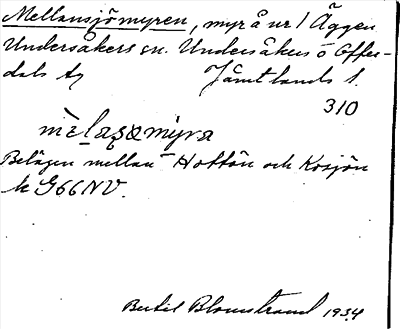 Mellansjömyren, myr å nr 1 Äggen
Undersåkers sn. Undersåkers o Offer-
dals tg Jämtlands l.
310
mèlaṣømyra
Belägen mellan Hottön och Kosjön
k G66NV.
Bertil Blomstrand 1934